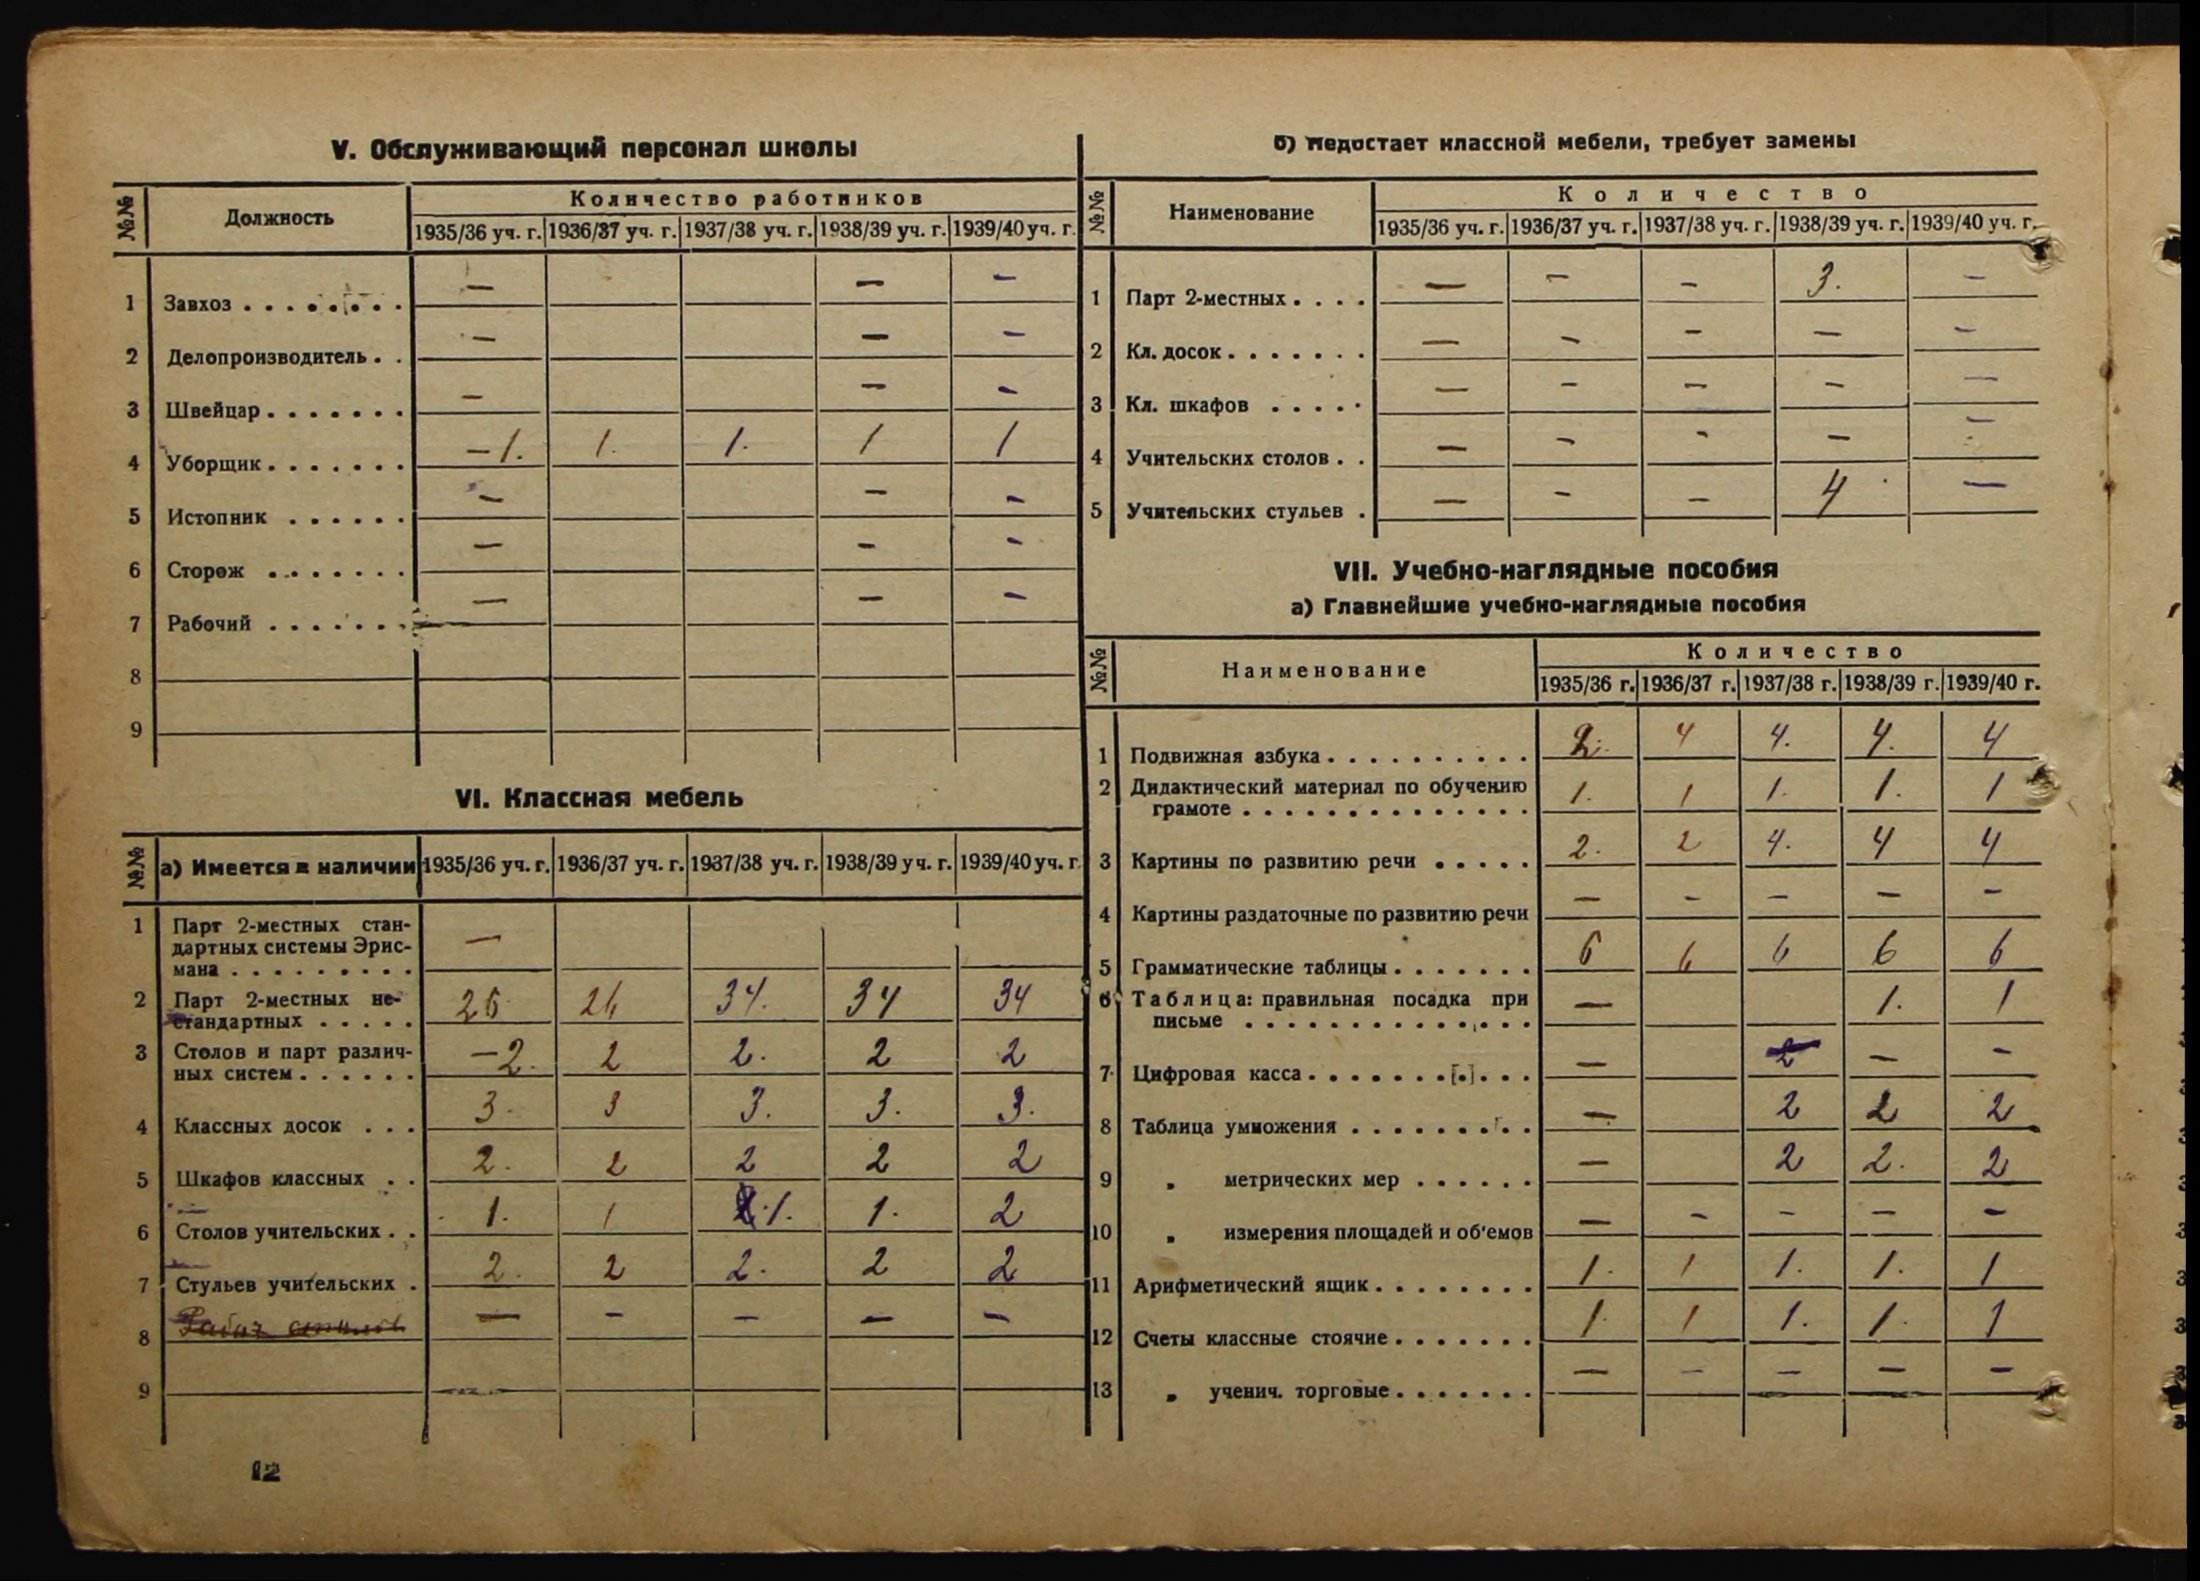 V. Обслуживающий персонал школы
№№ Должность Количество работников
1935/36 уч. г. 1936/37 уч. г. 1937/38 уч. г. 1938/39 уч. г. 1939/40 уч. г.
1 Завхоз . . . . . . . . — — —
2 Делопроизводитель . . — — —
3 Швейцар . . . . . . . — — —
4 Уборщик . . . . . . . —1. 1. 1. 1 1
5 Истопник . . . . . . — — —
6 Сторож . . . . . . . — — —
7 Рабочий . . . . . . . — — —
8
9
VI. Классная мебель
№№ а) Имеется в наличии 1935/36 уч. г. 1936/37 уч. г. 1937/38 уч. г. 1938/39 уч. г. 1939/40 уч. г.
1 Парт 2-местных стан-
дартных системы Эрис-
мана . . . . . . . . . —
2 Парт 2-местных не-
стандартных . . . . . 26 26 34. 34 34
3 Столов и парт различ-
ных систем . . . . . . —2. 2 2. 2 2
4 Классных досок . . . 3. 3 3. 3. 3.
5 Шкафов классных . . 2. 2 2 2 2
6 Столов учительских . . 1. 1 1. 1. 2
7 Стульев учительских . 2. 2 2. 2 2
8 — — — — —
9
12
б) Недостает классной мебели, требует замены
№№ Наименование Количество
1935/36 уч. г. 1936/37 уч. г. 1937/38 уч. г. 1938/39 уч. г. 1939/40 уч. г.
1 Парт 2-местных . . . . — — — 3. —
2 Кл. досок . . . . . . . — — — — —
3 Кл. шкафов . . . . . — — — — —
4 Учительских столов . . — — — — —
5 Учительских стульев . — — — 4 —
VII. Учебно-наглядные пособия
а) Главнейшие учебно-наглядные пособия
№№ Наименование Количество
1935/36 г. 1936/37 г. 1937/38 г. 1938/39 г. 1939/40 г.
1 Подвижная азбука . . . . . . . . . . 2. 4 4. 4. 4
2 Дидактический материал по обучению
грамоте . . . . . . . . . . . . . . 1. 1 1. 1. 1
3 Картины по развитию речи . . . . . 2. 2 4. 4 4
4 Картины раздаточные по развитию речи — — — — —
5 Грамматические таблицы . . . . . . . 6 6 6 6 6
6 Таблица: правильная посадка при
письме . . . . . . . . . . . . . . — 1. 1
7 Цифровая касса . . . . . . . [.] . . . — 2 — —
8 Таблица умножения . . . . . . . . . — 2 2 2
9 „ метрических мер . . . . . . — 2 2. 2
10 „ измерения площадей и об'емов — — — — —
11 Арифметический ящик . . . . . . . . 1. 1 1. 1. 1
12 Счеты классные стоячие . . . . . . . 1. 1 1. 1. 1
13 „ ученич. торговые . . . . . . . — — — — —